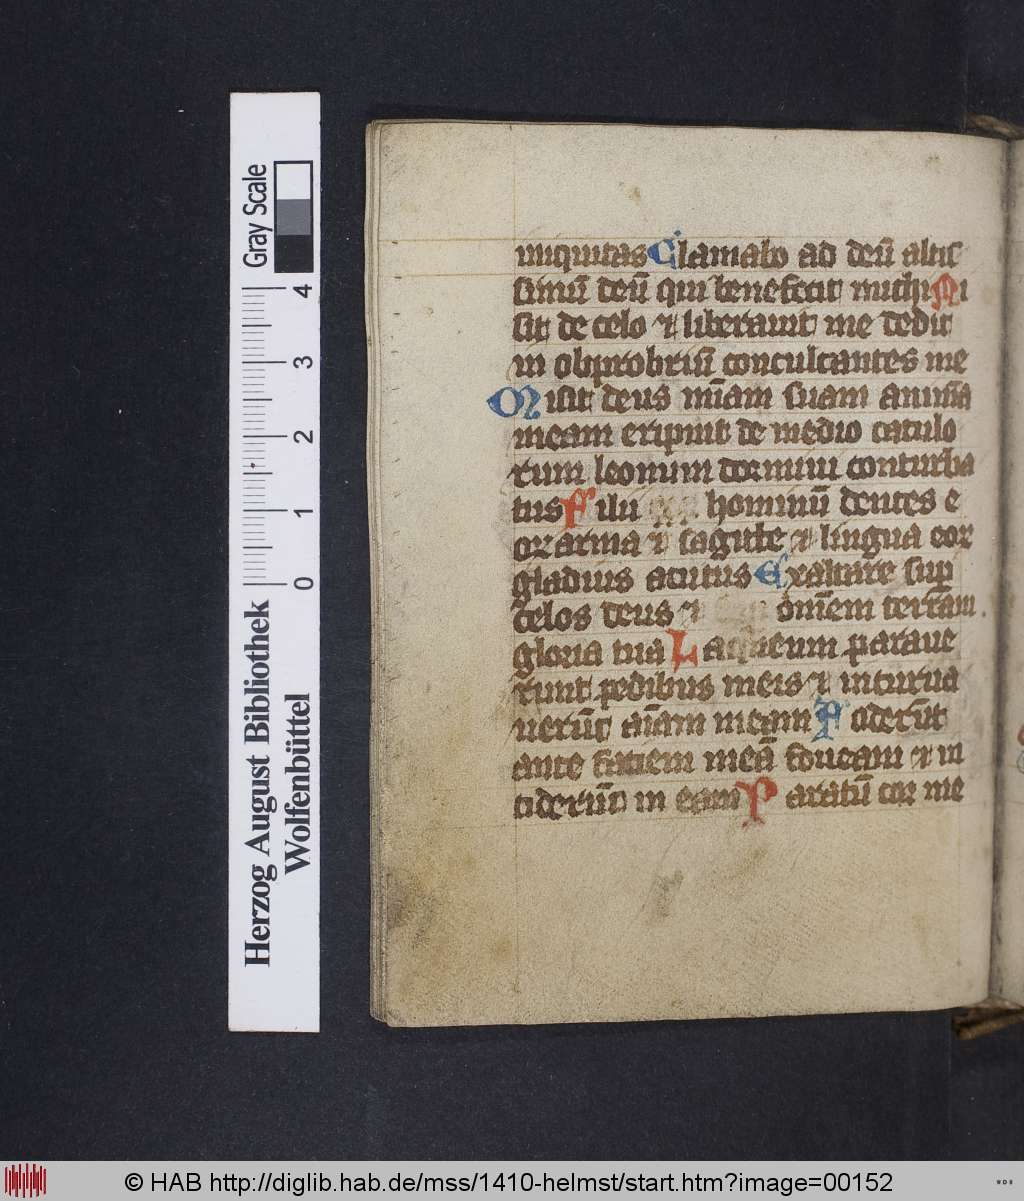 iniquitas Clamabo ad deū altis
simū deū qui benefecit michi Mi
sit de celo ⁊ liberauit me dedit
in obprobriū conculcantes me
Misit deus mīam suam
meam eripuit de medio catulo
rum leonum dormiui conturba
tus Filii hominū dentes e
or arma ⁊ sagitte ⁊ lingua eor
gladius acutus Exaltare sup
celos deus ⁊ omēm terram.
gloria tua Laqueum paraue
runt pedibus meis ⁊ incurua
uerūt aīam meam Foderūt
ante faciem meā foueam ⁊ in
ciderūt in eam Paratū cor me
Gray Scale
4 3 2 1 0
Herzog August Bibliothek
Wolfenbüttel
© HAB http://diglib.hab.de/mss/1410-helmst/start.htm?image=00152